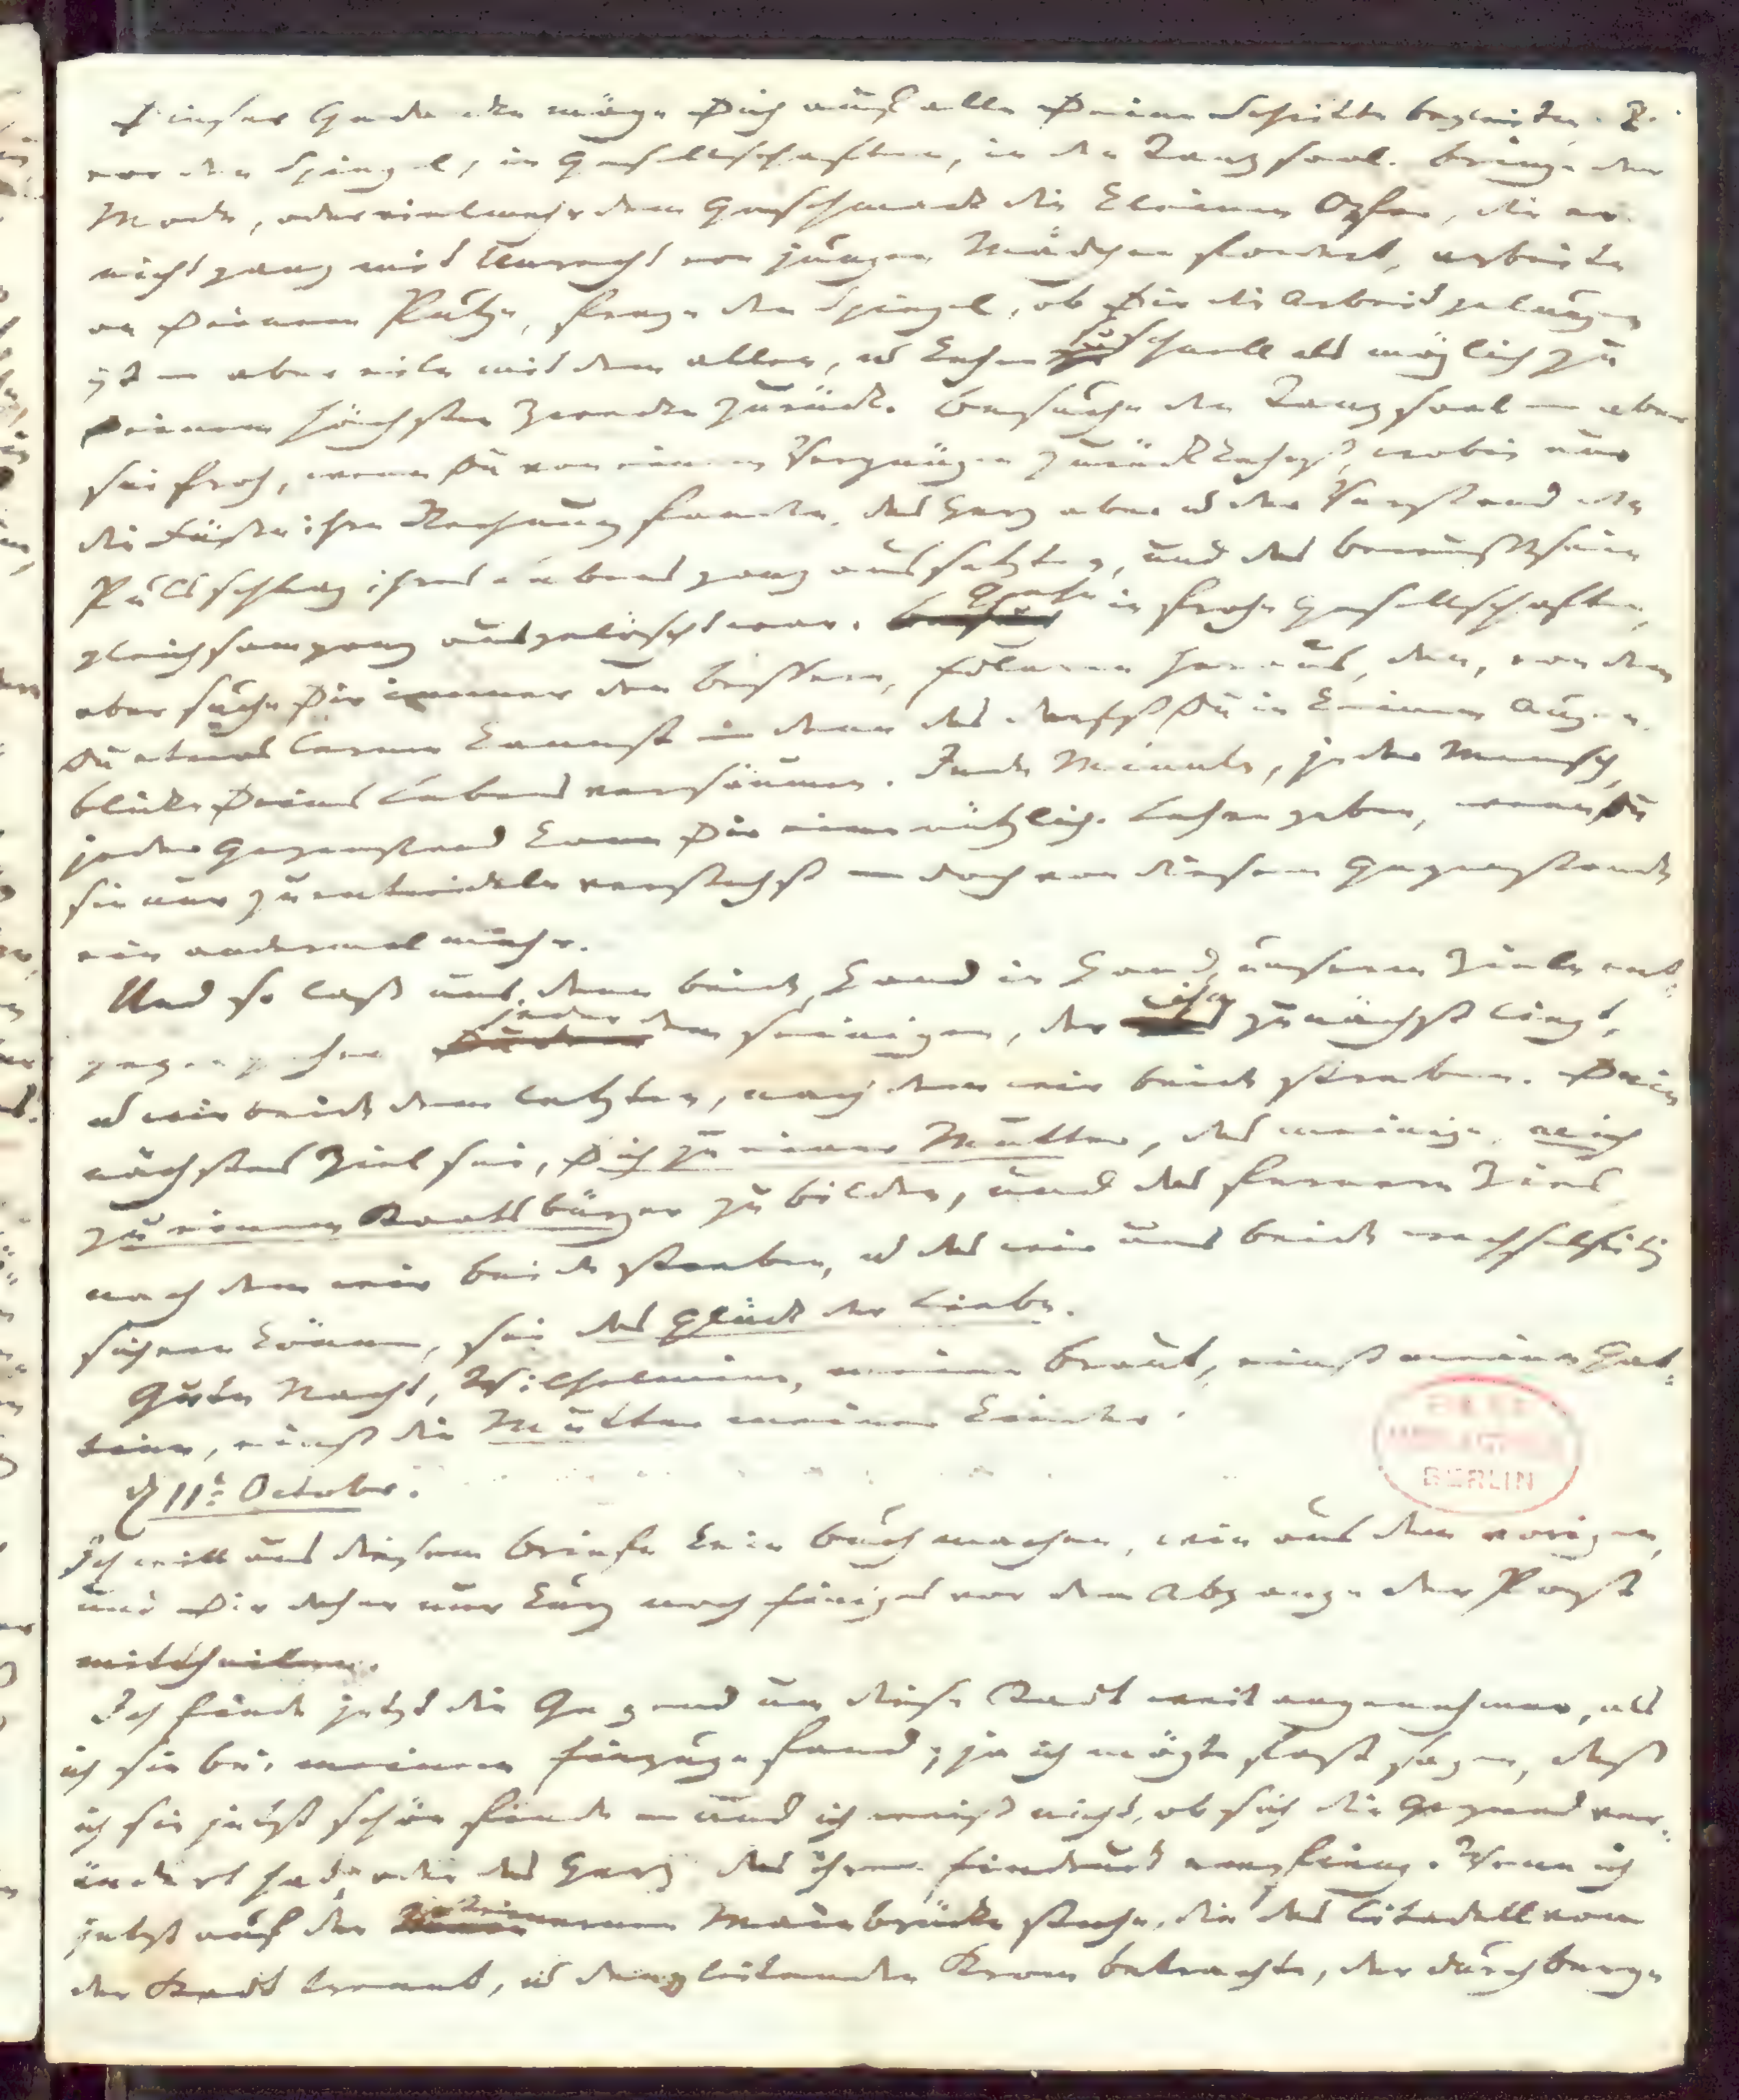 Dieser Gedanke möge Dich auf alle Deine Schritte begleiten,
vor den Spiegel, in Gesellschaften, in den Tanzsaal. Bringe der
Mode, oder vielmehr dem Geschmack die kleinen Opfer, die er
nicht ganz mit Unrecht von jungen Mädchen fordert, arbeite
an Deinem Putze, frage den Spiegel, ob Dir die Arbeit gelungen
ist — aber eile mit dem allen, u kehre so schnell als möglich zu
Deinem höchsten Zwecke zurück. Besuche den Tanzsaal — aber
sei froh, wenn Du von einem Vergnügen zurückkehrst, wobei nur
die Füße ihre Rechnung fanden, das Herz aber u der Verstand den
Pulsschlag ihres Lebens ganz aussetzten, und das Bewußtsein
gleichsam ganz ausgelöscht war. Gehe in frohe Gesellschaften,
aber suche Dir immer den Bessern, Edleren heraus, den, von dem
Du etwas lernen kannst — denn das darfst Du in keinem Augen-
blicke Deines Lebens versäumen. Jede Minute, jeder Mensch,
jeder Gegenstand kann Dir eine nützliche Lehre geben, wenn Du
sie nur zu entwickeln verstehst — doch von diesem Gegenstande
ein andermal mehr.
Und so laß uns denn beide, Hand in Hand, unserm Ziele ent-
gegen gehen, jeder dem seinigen, das ihm zunächst liegt,
u wir beide dem letzten, nach dem wir beide streben. Dein
nächstes Ziel sei, Dich zu einer Mutter, das meinige, mich
zu einem Staatsbürger zu bilden, und das fernere Ziel,
nach dem wir beide streben, u das wir uns beide wechselseitig
sichern können, sei das Glück der Liebe.
Gute Nacht, Wilhelmine, meine Braut, einst meine Gat-
tinn, einst die Mutter meiner Kinder.
d 11t October.
Ich will aus diesem Briefe kein Buch machen, wie aus dem vorigen,
und Dir daher nur kurz noch Einiges vor dem Abgange der Post
mittheilen.
Ich finde jetzt die Gegend um diese Stadt weit angenehmer, als
ich sie bei meinem Einzuge fand; ja ich mögte fast sagen, daß
ich sie jetzt schön finde — und ich weiß nicht, ob sich die Gegend ver-
ändert hat, oder das Herz, das ihren Eindruck empfieng. Wenn ich
jetzt auf der steinernen Mainbrücke stehe, die das Citadell von
der Stadt trennt, u den gleitenden Strom betrachte, der durch Berge
BERLIN